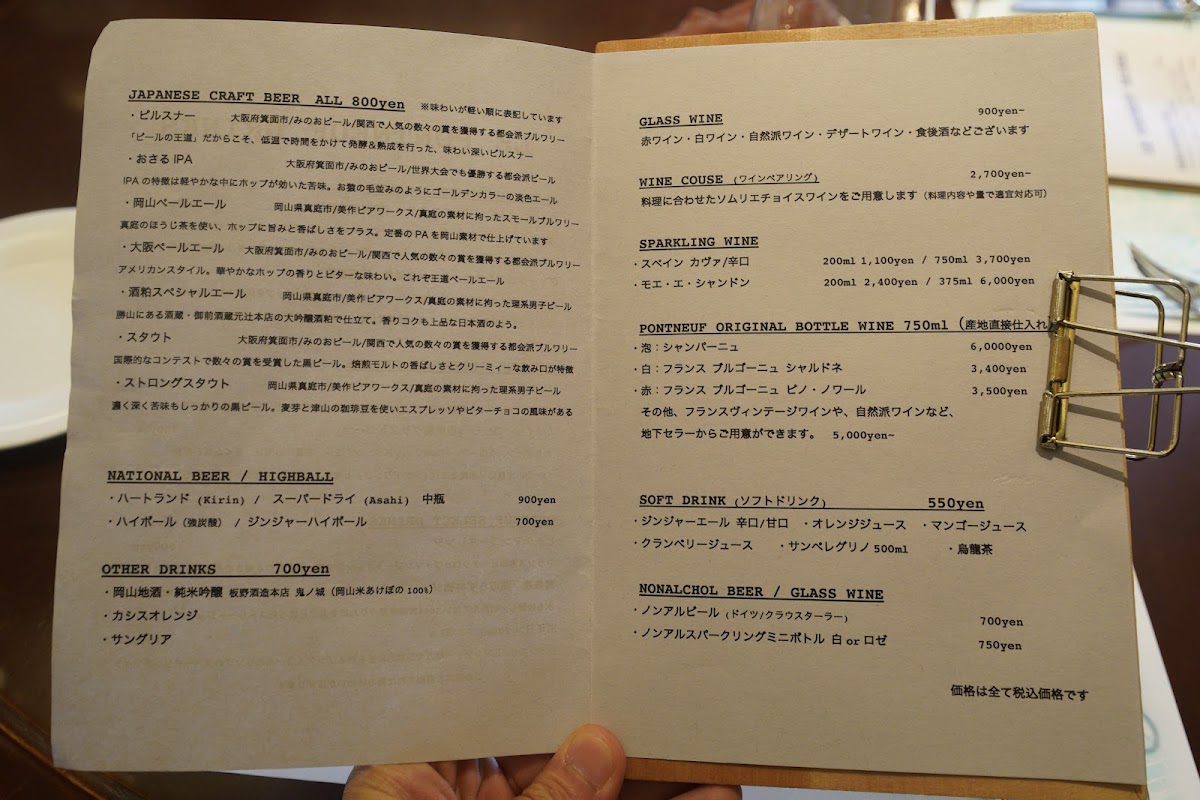 JAPANESE CRAFT BEER ALL 800yen ※味わいが軽い順に表記しています
・ピルスナー 大阪府箕面市/みのおビール/関西で人気の数々の賞を獲得する都会派ブルワリー
「ビールの王道」だからこそ、低温で時間をかけて発酵&熟成を行った、味わい深いピルスナー
・おさる IPA 大阪府箕面市/みのおビール/世界大会でも優勝する都会派ビール
IPA の特徴は軽やかな中にホップが効いた苦味。お猿の毛並みのようにゴールデンカラーの淡色エール
・岡山ペールエール 岡山県真庭市/美作ビアワークス/真庭の素材に拘ったスモールブルワリー
真庭のほうじ茶を使い、ホップに旨みと香ばしさをプラス。定番の PA を岡山素材で仕上げています
・大阪ペールエール 大阪府箕面市/みのおビール/関西で人気の数々の賞を獲得する都会派ブルワリー
アメリカンスタイル。華やかなホップの香りとビターな味わい。これぞ王道ペールエール
・酒粕スペシャルエール 岡山県真庭市/美作ビアワークス/真庭の素材に拘った理系男子ビール
勝山にある酒蔵・御前酒蔵元辻本店の大吟醸酒粕で仕立て。香りコクも上品な日本酒のよう。
・スタウト 大阪府箕面市/みのおビール/関西で人気の数々の賞を獲得する都会派ブルワリー
国際的なコンテストで数々の賞を受賞した黒ビール。焙煎モルトの香ばしさとクリーミィーな飲み口が特徴
・ストロングスタウト 岡山県真庭市/美作ビアワークス/真庭の素材に拘った理系男子ビール
濃く深く苦味もしっかりの黒ビール。麦芽と津山の珈琲豆を使いエスプレッソやビターチョコの風味がある
NATIONAL BEER / HIGHBALL
・ハートランド (Kirin) / スーパードライ (Asahi) 中瓶 900yen
・ハイボール (強炭酸) / ジンジャーハイボール 700yen
OTHER DRINKS 700yen
・岡山地酒・純米吟醸 板野酒造本店 鬼ノ城 (岡山米あけぼの 100%)
・カシスオレンジ
・サングリア
GLASS WINE 900yen~
赤ワイン・白ワイン・自然派ワイン・デザートワイン・食後酒などございます
WINE COUSE (ワインペアリング) 2,700yen~
料理に合わせたソムリエチョイスワインをご用意します (料理内容や量で適宜対応可)
SPARKLING WINE
・スペイン カヴァ/辛口 200ml 1,100yen / 750ml 3,700yen
・モエ・エ・シャンドン 200ml 2,400yen / 375ml 6,000yen
PONTNEUF ORIGINAL BOTTLE WINE 750ml (産地直接仕入れ)
・泡:シャンパーニュ 6,0000yen
・白:フランス ブルゴーニュ シャルドネ 3,400yen
・赤:フランス ブルゴーニュ ピノ・ノワール 3,500yen
その他、フランスヴィンテージワインや、自然派ワインなど、
地下セラーからご用意ができます。 5,000yen~
SOFT DRINK (ソフトドリンク) 550yen
・ジンジャーエール 辛口/甘口 ・オレンジジュース ・マンゴージュース
・クランベリージュース ・サンペレグリノ 500ml ・烏龍茶
NONALCHOL BEER / GLASS WINE
・ノンアルビール (ドイツ/クラウスターラー) 700yen
・ノンアルスパークリングミニボトル 白 or ロゼ 750yen
価格は全て税込価格です